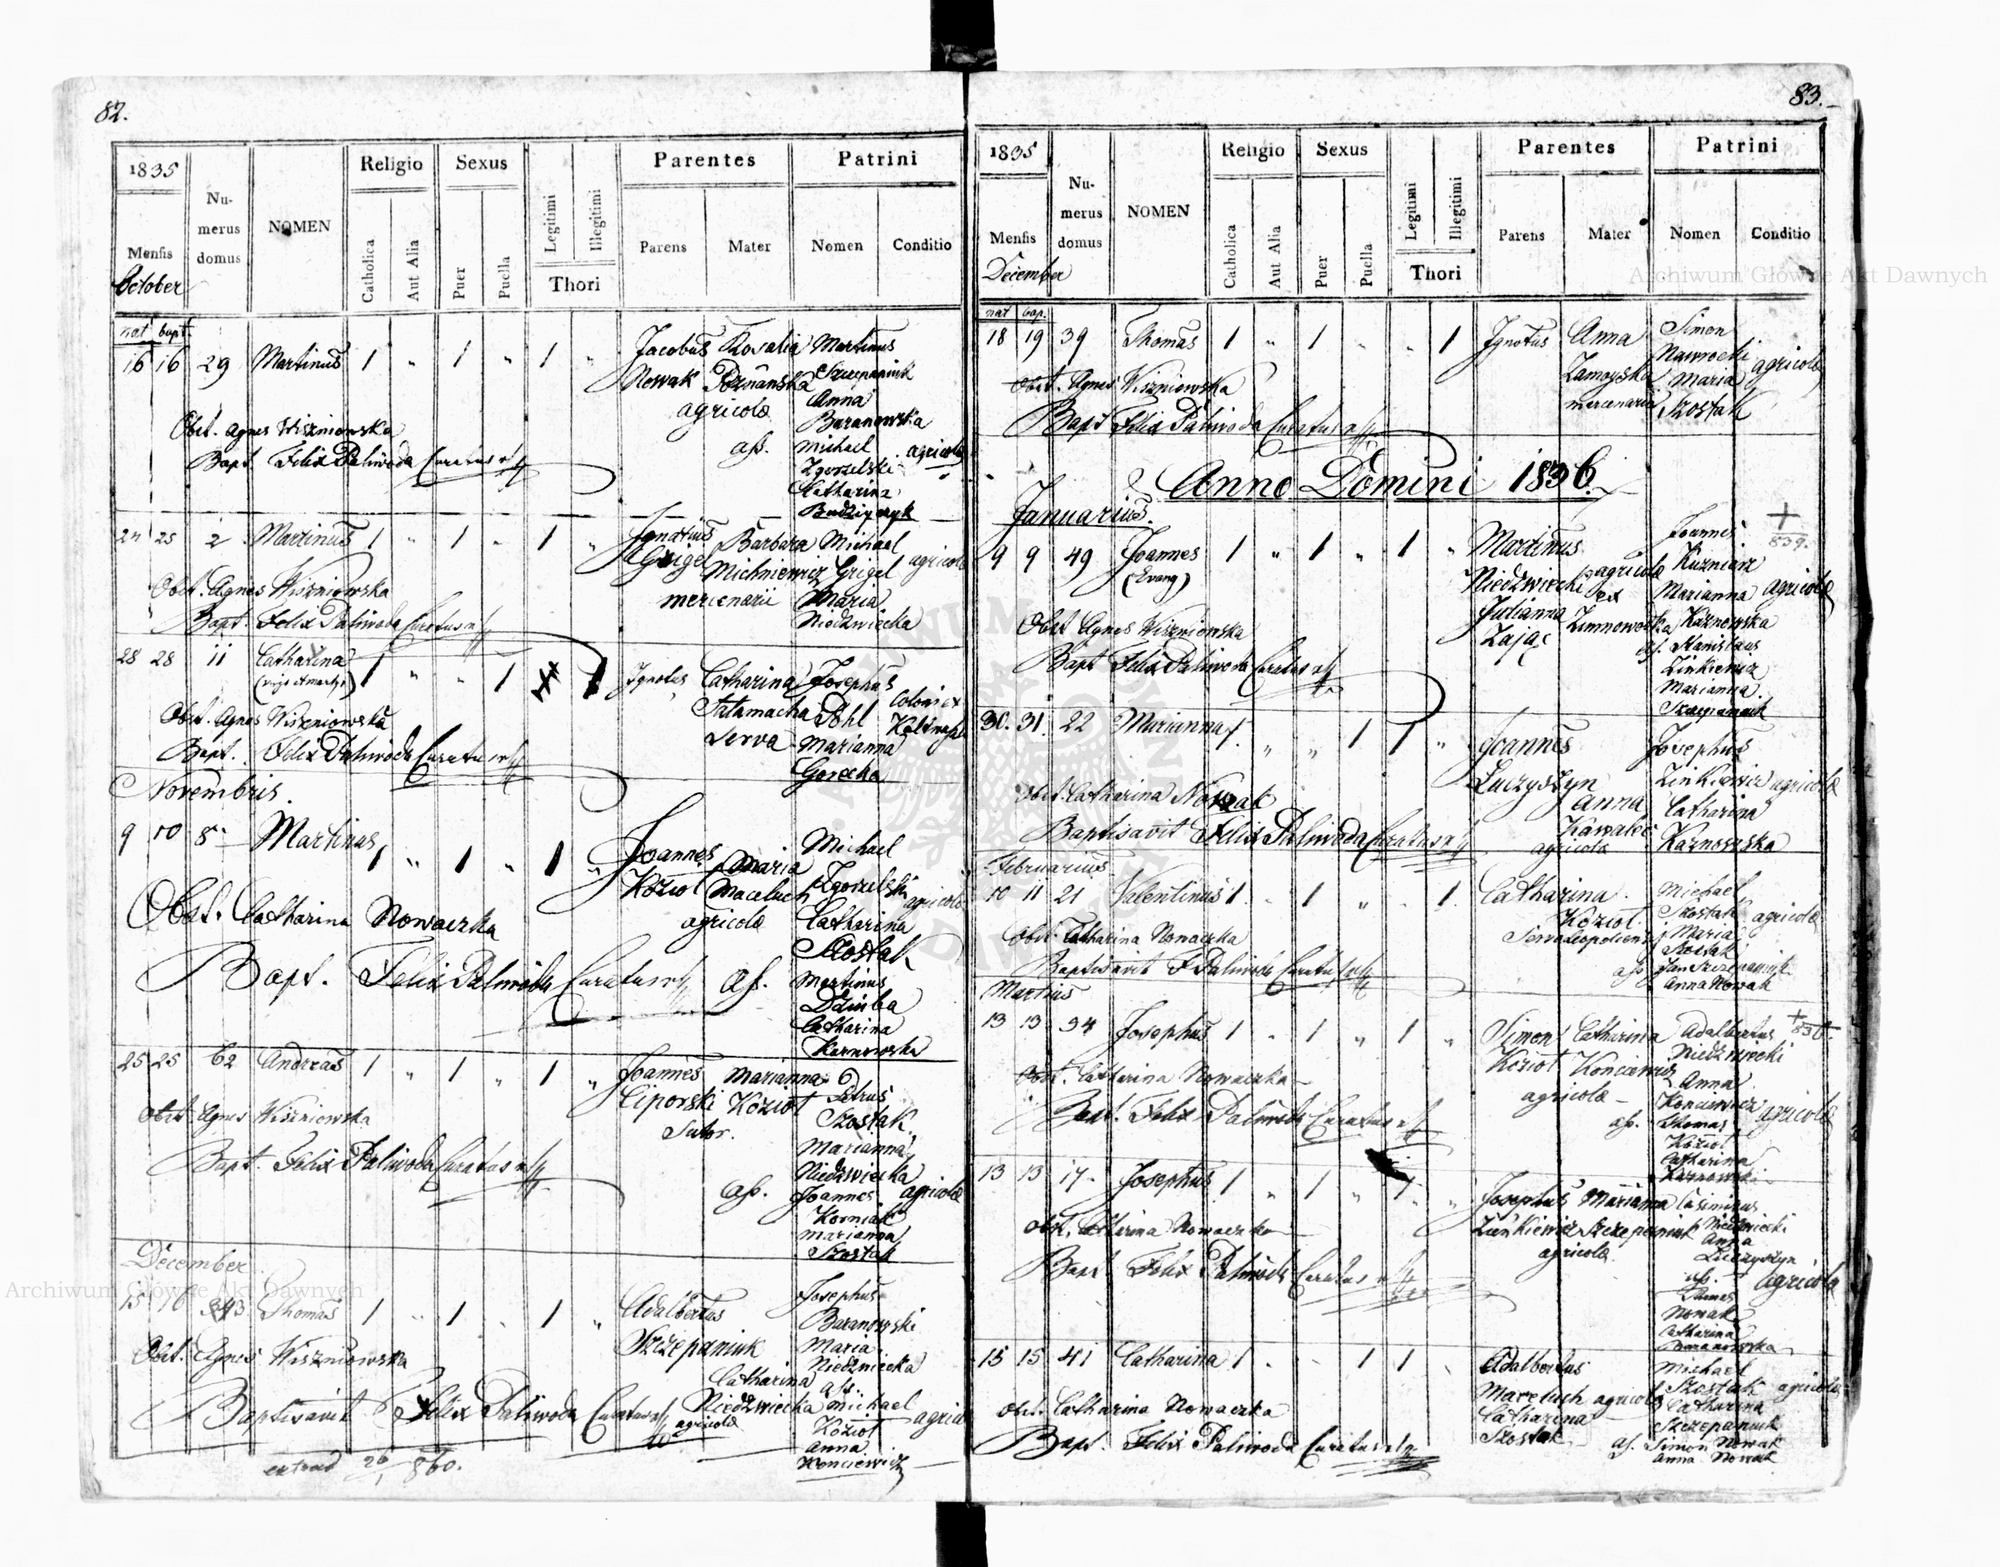 82.
1835
Numerus domus
NOMEN
Religio
Sexus
Parentes
Patrini
Mensis
Catholica
Aut Alia
Puer
Puella
Legitimi
Illegitimi
Thori
Parens
Mater
Nomen
Conditio
October
nat bapt.
16 16 29 Martinus 1 " 1 " 1 "
Jacobus Nowak
Rosalia Poznanska
agricolæ
Martinus Szczepaniuk
Anna Baranowska
aſs. Michael Zgorzelski
Catharina
agricolæ
Obst. Agnes Wiszniowska
Bapt. Felix Paliwoda Curatus
24 25 2 Martinus 1 " 1 " 1 "
Ignatius Grigel
Barbara Michniewicz
mercenarii
Michael Grigel
Maria Niedzwiecka
agricolæ
Obst. Agnes Wiszniowska
Bapt. Felix Paliwoda Curatus
28 28 11 Catharina 1 " " 1
Ignotus
Catharina Tatamacha
serva
Josephus Pohl
Marianna Gorecka
Obst. Agnes Wiszniowska
Bapt. Felix Paliwoda Curatus
Novembris.
9 10 8 Martinus 1 " 1 " 1 "
Joannes Kozioł
Maria Maceluch
agricolæ
Michael Zgorzelski
Catharina Szostak
agricolæ
aſs. Martinus Dziuba
Catharina Karnowska
Obst. Catharina Nowaczka
Bapt. Felix Paliwoda Curatus
25 25 62 Andreas 1 " 1 " 1 "
Joannes Ciporski
Marianna Kozioł
Sutor.
Petrus Szostak
Marianna Niedzwiecka
aſs. Joannes Korniak
Marianna Szostak
agricolæ
Obst. Agnes Wiszniowska
Bapt. Felix Paliwoda Curatus
December
15 16 43 Thomas 1 " 1 " 1 "
Adalbertus Szczepaniuk
Catharina Niedzwiecka
agricolæ
Josephus Baranowski
Maria Niedzwiecka
aſs. Michael Kozioł
Anna Konciewicz
Obst. Agnes Wiszniowska
Baptisavit Felix Paliwoda Curatus
extrad 26/1 860.
83.
1835
Numerus domus
NOMEN
Religio
Sexus
Parentes
Patrini
Mensis
Catholica
Aut Alia
Puer
Puella
Legitimi
Illegitimi
Thori
Parens
Mater
Nomen
Conditio
December
nat bap.
18 19 39 Thomas 1 " 1 " " 1
Ignotus
Anna Zamoyska
mercenaria
Simon Nawrocki
Maria Szostak
agricolæ
Obst. Agnes Wiszniowska
Bapt Felix Paliwoda Curatus
Anno Domini 1836.
Januarius.
9 9 49 Joannes (Evang) 1 " 1 " 1 "
Martinus Niedzwiecki agricola et
Julianna Zając
Joannes Kuzniarz
Marianna Karnowska
agricolæ
aſs. Stanislaus Zinkiewicz
Marianna
+ 839.
Obst Agnes Wiszniowska
Bapt Felix Paliwoda Curatus
30. 31. 22 Marianna 1. " " 1 1 "
Joannes Łuczyszyn
Anna Kawalec
agricolæ
Josephus Zinkiewicz
Catharina Karnowska
agricolæ
Obst. Catharina Nowak
Baptisavit Felix Paliwoda Curatus
Februarius.
10 11 21 Valentinus 1 " 1 " " 1.
Catharina Kozioł.
Michael Szostak
Maria Szostak
agricolæ
aſs. Jan Szczepaniuk
Anna Nowak
Obst. Catharina Nowaczka
Baptisavit F Paliwoda Curatus
Martius
13 13 34 Josephus 1 " 1 " 1 "
Simon Kozioł
Catharina Konciewicz
agricolæ
Adalbertus Niedzwiecki
Anna Konciewicz
agricolæ
aſs. Thomas Kozioł
Catharina Karnowski
+ 836.
Obst. Catharina Nowaczka
Bapt. Felix Paliwoda Curatus
13 13 17. Josephus 1 " 1 " 1 "
Josephus Zinkiewicz
Marianna Szczepaniuk
agricolæ
Casimirus Niedzwiecki
Anna Łuczyszyn
aſs.
Nowak
Catharina Baranowska
agricolæ
Obst. Catharina Nowaczka
Bapt. Felix Paliwoda Curatus
15 15 41 Catharina 1 " " 1 1 "
Adalbertus Maceluch agricola
Catharina Szostak
Michael Szostak
Catharina Szczepaniuk
agricolæ
aſs. Simon Nowak
Anna Nowak
Obst. Catharina Nowaczka
Bapt. Felix Paliwoda Curatus
Archiwum Główne Akt Dawnych
Archiwum Główne Akt Dawnych